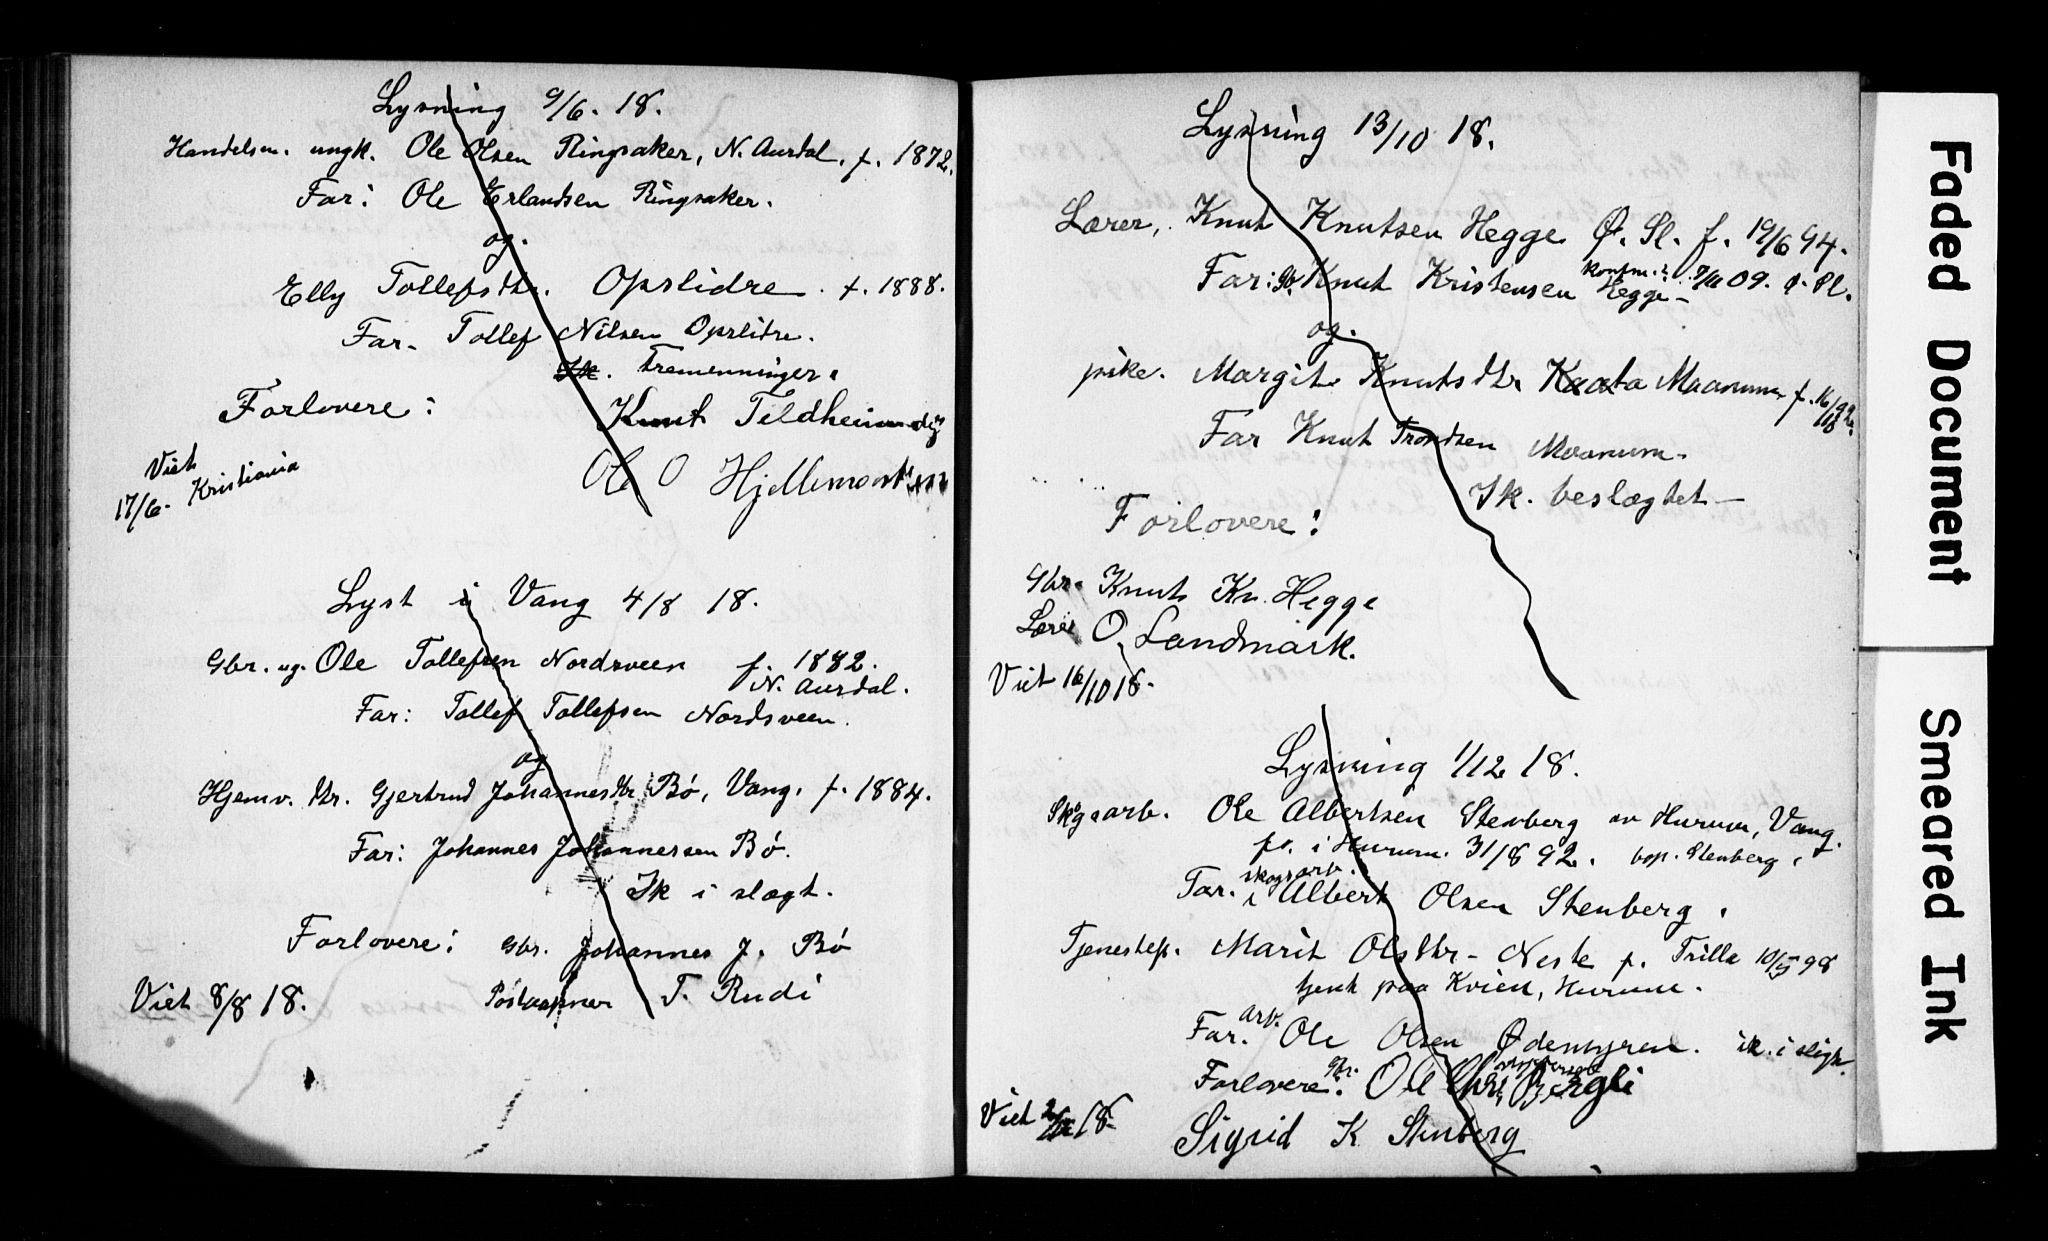 Lysning 9/6. 18.
Handelsm. ungk. Ole Olsen Ringsaker, N. Aurdal. f. 1872.
Far: Ole Erlandsen Ringsaker.
og.
Elly Tollefsdtr. Opslidre. f. 1888.
Far. Tollef Nilsen Opslidre.
Ik. Tremenninger.
Forlovere: Knut Tildheim
Ole O Hjelle
Viet
17/6. Kristiania
Lyst i Vang 4/8 18.
Gbr. ug. Ole Tollefsen Nordsveen f. 1882.
N. Aurdal.
Far: Tollef Tollefsen Nordsveen.
og
Hjemv. dtr. Gjertrud Johannesdtr Bø, Vang. f. 1884.
Far: Johannes Johannessen Bø.
Ik i slægt.
Forlovere: Gbr. Johannes J. Bø
Viet 8/8 18. Postaapner T. Rudi
Lysning 13/10 18.
Lærer, Knut Knutsen Hegge Ø. Sl. f. 19/6 94.
konfm. 09. Ø. Sl.
Far: Gb. Knut Kristensen Hegge
og.
pike. Margit Knutsdtr Kaata Moanum f. 16/10 92.
Far Knut Trondsen Moanum.
Ik. beslægtet
Forlovere:
Gbr. Knut Kr. Hegge
Lærer O. Landmark.
Viet 16/10 18.
Lysning 1/12 18.
Skogsarb. Ole Albertsen Stenberg av Hurum, Vang.
fø. i Hurum. 31/8 92. bop. Stenberg.
skogsarb.
Far. Albert Olsen Stenberg.
Tjenestep. Marit Olsdtr. Neste f. Trilla 10/5 98
tjent paa Kvien, Hurum.
arb.
Far. Ole Olsen Ødemyren. ik. i slegt.
Forlovere: Gbr. Ole Bergli
Viet 18
Sigrid K Stenberg
Faded Document
Smeared Ink